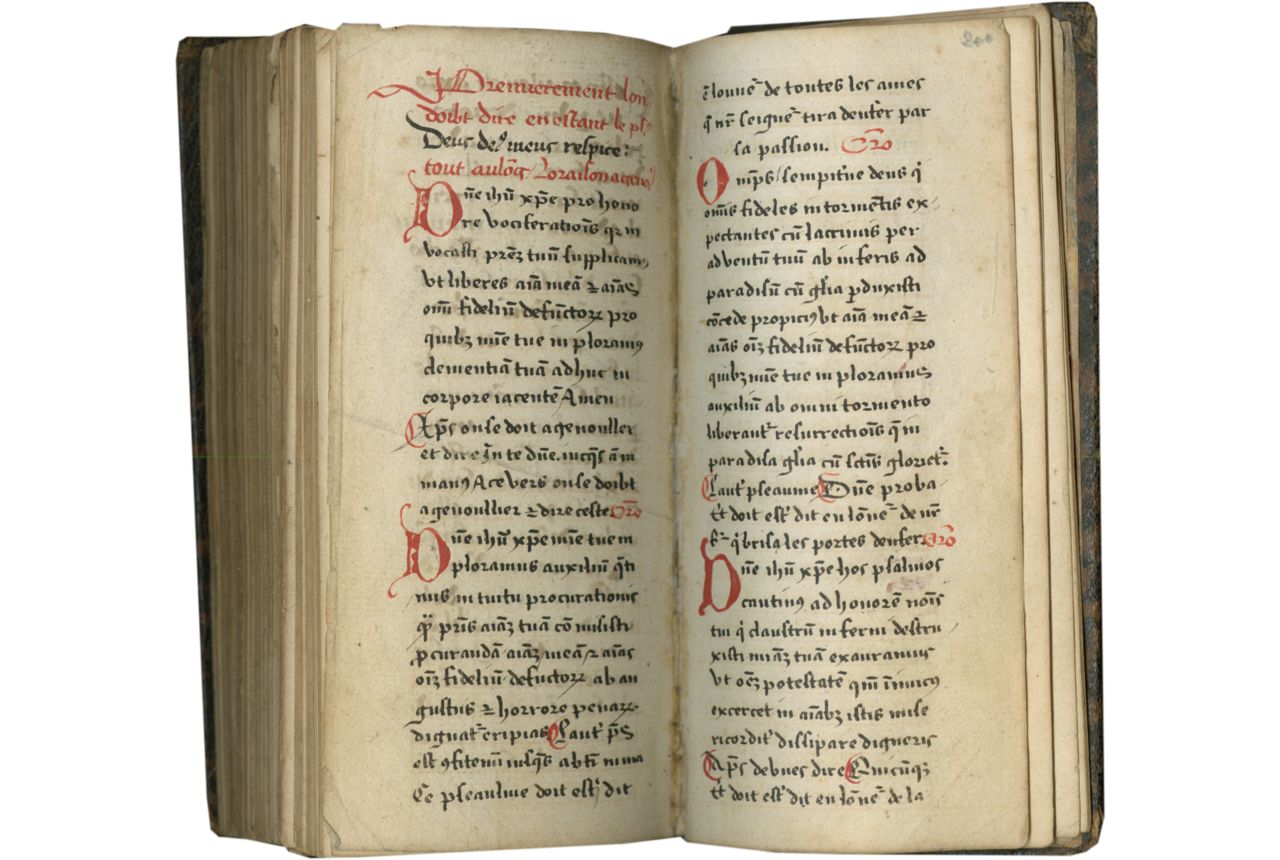 Premierement lon
doibt dire en estant le ps
Deus de9 meus respice:
tout au lõg Loraison a geno
Dñe ihũ xp̃e pro hono
re vociferatiõis q̃ in
vocasti prẽz tuũ supplicam9
vt liberes aĩã meã ⁊ aĩas
om̃i fidelĩu defũctoꝝ pro
quibz mĩe tue in ploram9
clementiã tuã ad huc in
corpore iacentẽ Amen
Ap̃s on se doit agenoiller
et dire In te dñe. iusq̃s a in
man9 A ce vers on se doibt
agenoullier ⁊ dire ceste Oro
Dñe ihũ xp̃e mĩe tue in
ploramus auxiliũ q̃ti
nus in tuitu procurationis
q̃ pr̃is aĩaz tuã cõmisisti
ꝓcurandã aĩaz meã ⁊ aĩas
oĩz fidelĩu defuctoꝝ ab an
gustiis ⁊ horrore penaꝝ
dignat᷑ eripias Laut᷑ ps̃
est 9fitemĩ iusq̃s ab tĩ nima
Ce pseaulme doit est᷑ dit
ẽ lonne᷑ de toutes les ames
q̃ nr̃e seigne᷑ tira denfer par
sa passion. Oro
Omp̃s sempitñe deus q̃
omĩs fideles in tormẽtis ex
pectantes cũ lacrimis per
adventũ tuũ ab inferis ad
paradisũ cũ gl̃ia ꝑduxisti
cõcede propici9 vt aĩã meã ⁊
aĩas oĩz fidelĩu defũctoꝝ pro
quibz mĩe tue in ploramus
auxiliũ ab omni tormento
liberant᷑ resurrectiõis q̃ in
paradisa gl̃ia cũ sctĩs gloriet᷑.
Laut᷑ pseaume Dñe proba
Et doit est᷑ dit en lõne᷑ de nr̃e
sr̃ q̃ brisa les portes denfer Oro
Dñe ihũ xp̃e hos psalmos
cantim9 ad honorẽ noĩs
tui q̃ claustrũ inferni destru
xisti mĩaz tuã exauramus
Vt oẽz potestatẽ quã ĩimic9
excercet in aĩabz istis mise
ricordit᷑ dissipare digneris
Ap̃s debues dire Quicũqz
Et doit est᷑ dit en lõne᷑ de la